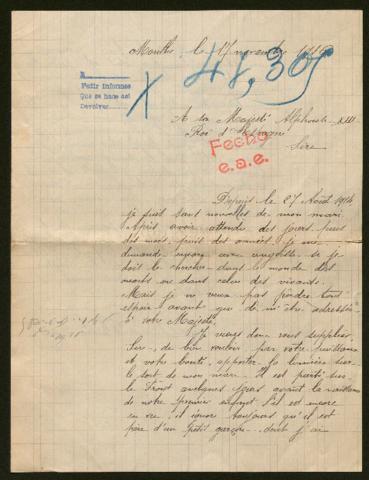 Mouthe le 17 novembre 1916
41,305
Pedir informes
Que se hace así
Devolver
X
A sa Majesté Alphonse XIII
Roi d'Espagne
Fecho
e.a.e.
Sire
Depuis le 27 Août 1914
je suis sans nouvelles de mon mari
Après avoir attendu des jours, puis
des mois, puis des années, je me
demande encore avec angoisse si je
dois le chercher dans le monde des
morts ou dans celui des vivants.
Mais je ne veux pas perdre tout
espoir avant que de m'être adressée
à votre Majesté.
Je viens donc vous supplier
Sire, de bien vouloir par votre puissance
et votre bonté, apporter la lumière sur
le sort de mon mari. Il est parti sur
le front quelques jours avant la naissance
de notre premier enfant s'il est encore
en vie, il ignore toujours qu'il est
père d'un petit garçon dont j'ai